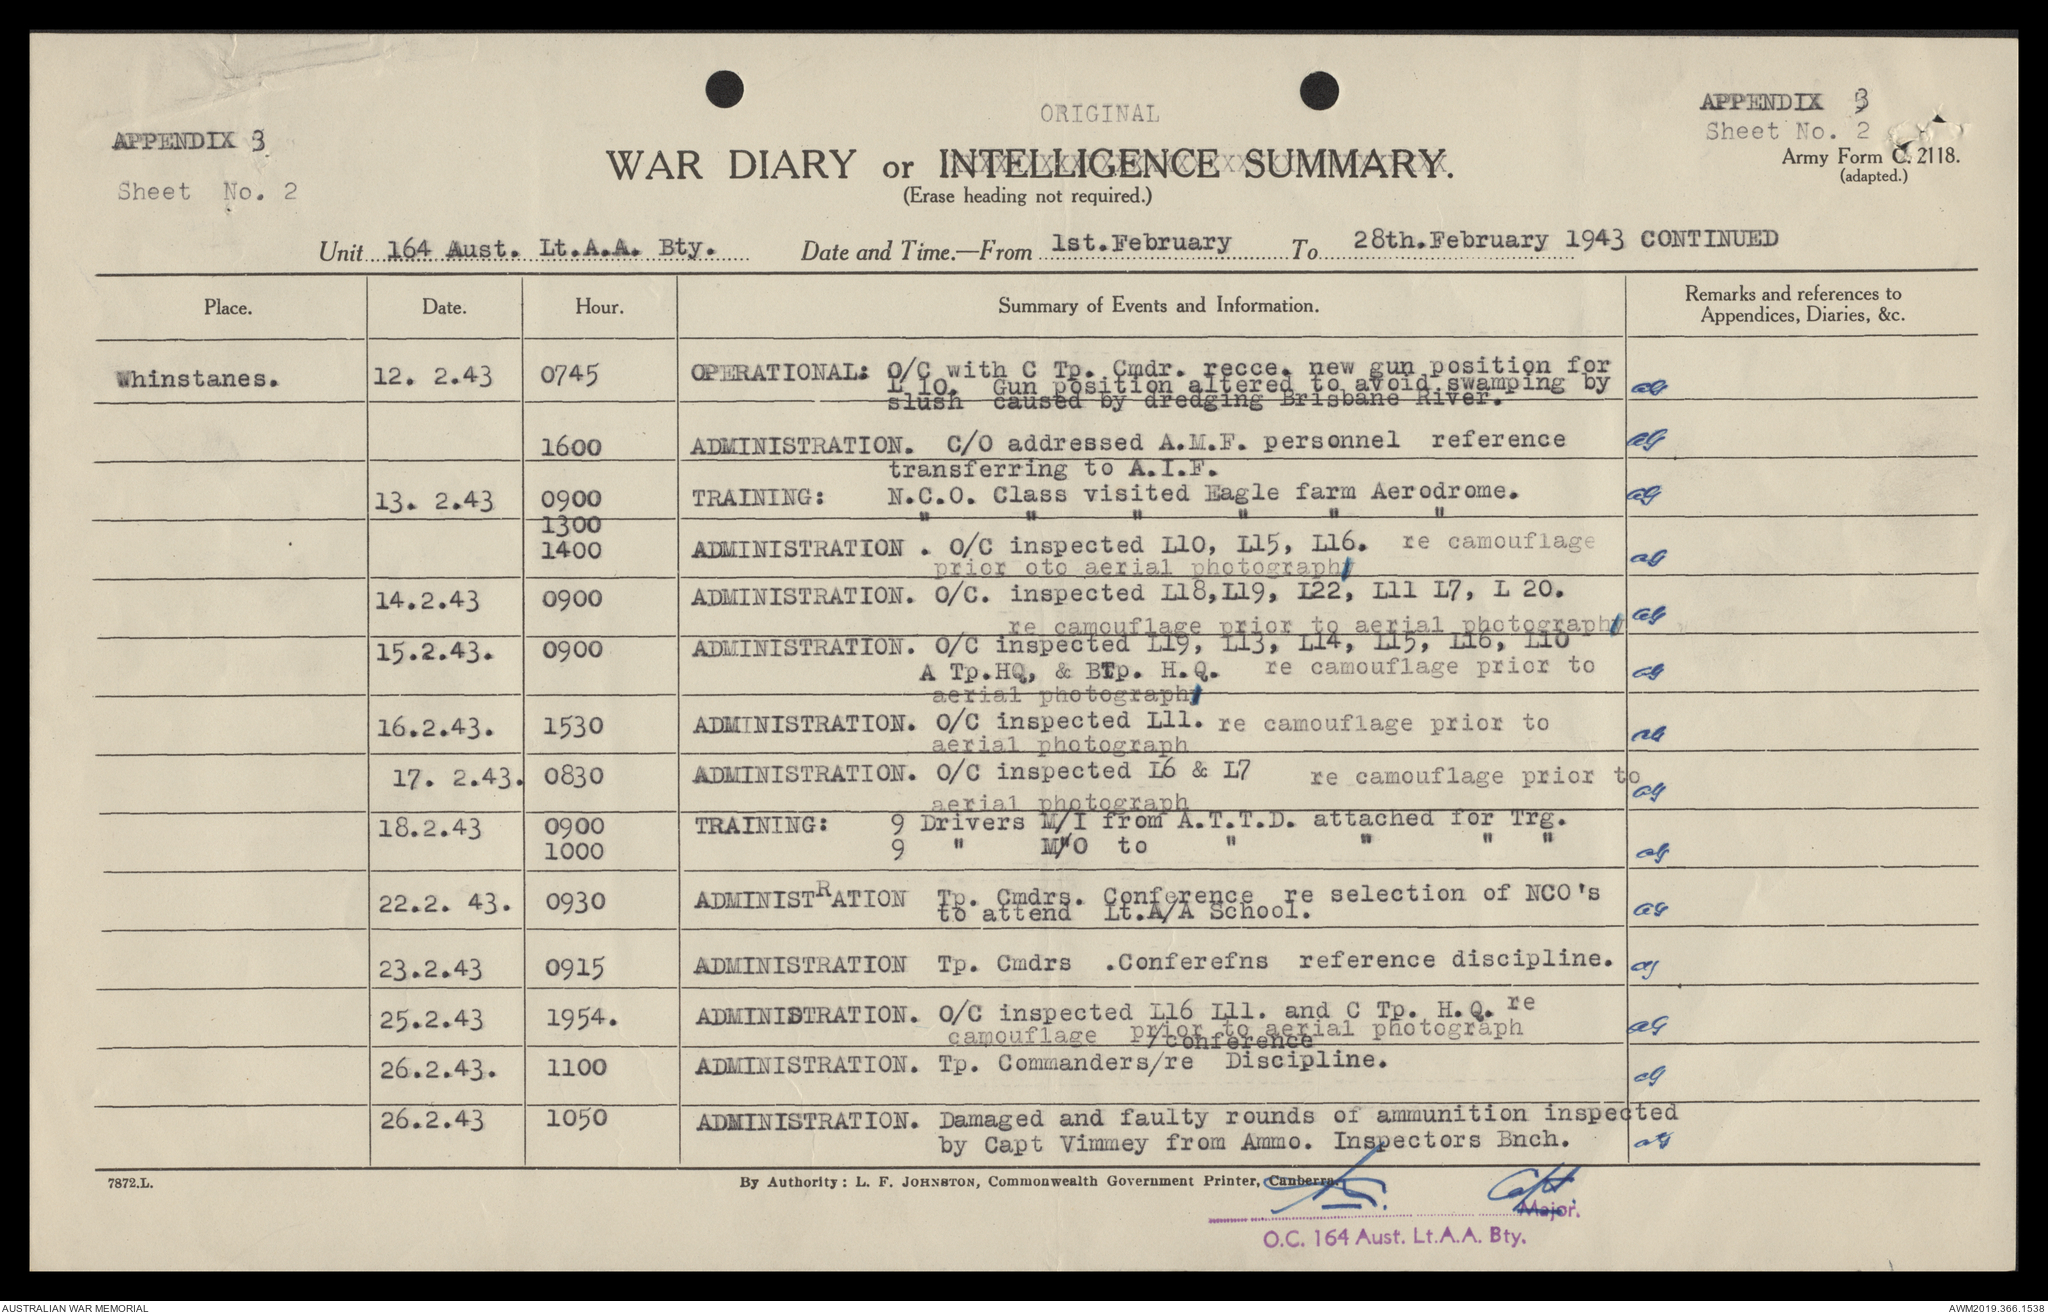 ORIGINAL
APPENDIX 3
Sheet No. 2
APPENDIX 3
Sheet No. 2
Army Form C. 2118.
(adapted.)
WAR DIARY or INTELLIGENCE SUMMARY.
(Erase heading not required.)
Unit 164 Aust. Lt.A.A. Bty. Date and Time.—From 1st.February To 28th.February 1943 CONTINUED
Place. Date. Hour. Summary of Events and Information. Remarks and references to
Appendices, Diaries, &c.
Whinstanes. 12. 2.43 0745 OPERATIONAL: O/C with C Tp. Cmdr. recce. new gun position for
L 10. Gun position altered to avoid swamping by
slush caused by dredging Brisbane River.
1600 ADMINISTRATION. C/O addressed A.M.F. personnel reference
transferring to A.I.F.
13. 2.43 0900 TRAINING: N.C.O. Class visited Eagle farm Aerodrome.
1300 " " " " " "
1400 ADMINISTRATION . O/C inspected L10, L15, L16. re camouflage
prior oto aerial photograph
14.2.43 0900 ADMINISTRATION. O/C. inspected L18,L19, L22, L11 L7, L 20.
re camouflage prior to aerial photograph
15.2.43. 0900 ADMINISTRATION. O/C inspected L19, L13, L14, L15, L16, L10
A Tp.HQ, & BTp. H.Q. re camouflage prior to
aerial photograph
16.2.43. 1530 ADMINISTRATION. O/C inspected L11. re camouflage prior to
aerial photograph
17. 2.43. 0830 ADMINISTRATION. O/C inspected L6 & L7 re camouflage prior to
aerial photograph
18.2.43 0900 TRAINING: 9 Drivers M/I from A.T.T.D. attached for Trg.
1000 9 " M/O to " " " "
22.2. 43. 0930 ADMINISTRATION Tp. Cmdrs. Conference re selection of NCO's
to attend Lt.A/A School.
23.2.43 0915 ADMINISTRATION Tp. Cmdrs .Conferefns reference discipline.
25.2.43 1954. ADMINISTRATION. O/C inspected L16 L11. and C Tp. H.Q. re
camouflage prior to aerial photograph
/conference
26.2.43. 1100 ADMINISTRATION. Tp. Commanders/re Discipline.
26.2.43 1050 ADMINISTRATION. Damaged and faulty rounds of ammunition inspected
by Capt Vimmey from Ammo. Inspectors Bnch.
7872.L. By Authority: L. F. JOHNSTON, Commonwealth Government Printer, Canberra.
Capt
Major.
O.C. 164 Aust. Lt.A.A. Bty.
AUSTRALIAN WAR MEMORIAL AWM2019.366.1538